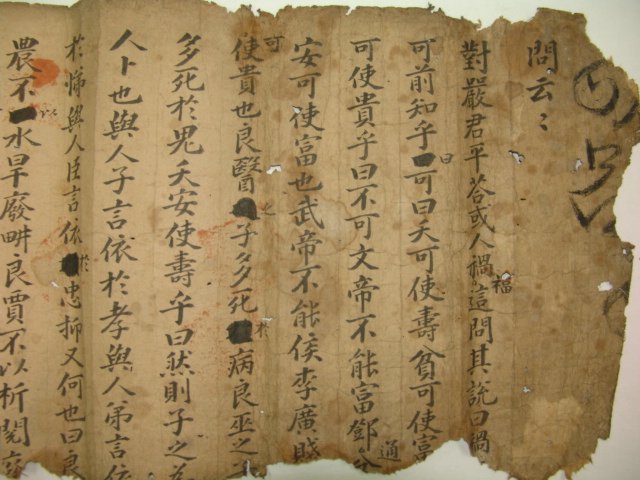 問云〻
對嚴君平答或人禍福這問其說曰禍
可前知乎曰可曰夭可使壽貧可使富
可使貴乎曰不可文帝不能富鄧通
安可使富也武帝不能侯李廣賤
可使貴也良醫之子多死於病良巫之
多死於鬼夭安使壽乎曰然則子之為
人卜也與人子言依於孝與人弟言依
於悌與人臣言依於忠抑又何也曰良
農不以水旱廢畊良賈不以折閱